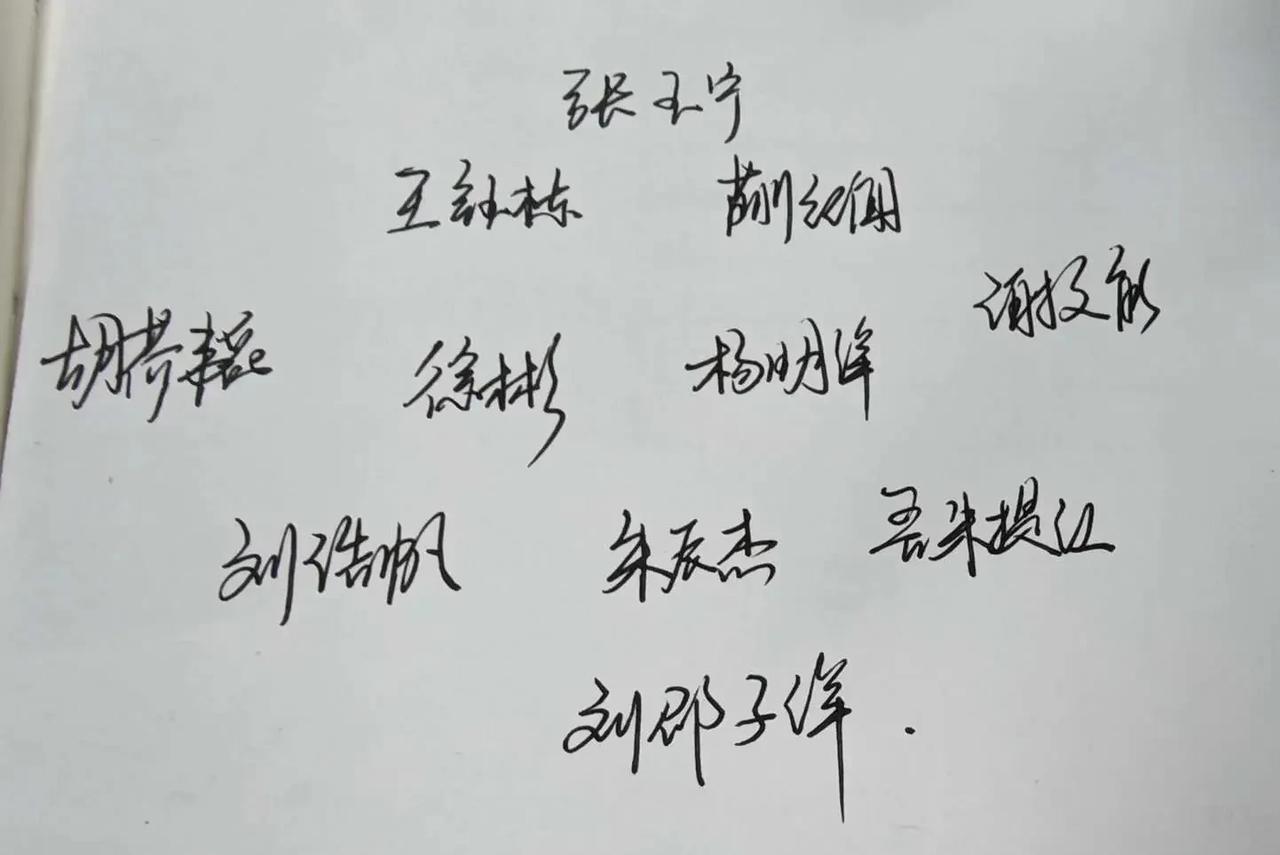 张玉宁
王钰栋 蒯纪闻
胡荷韬 徐彬 杨明洋 谢文能
刘浩帆 朱辰杰 吾米提江
刘邵子洋.